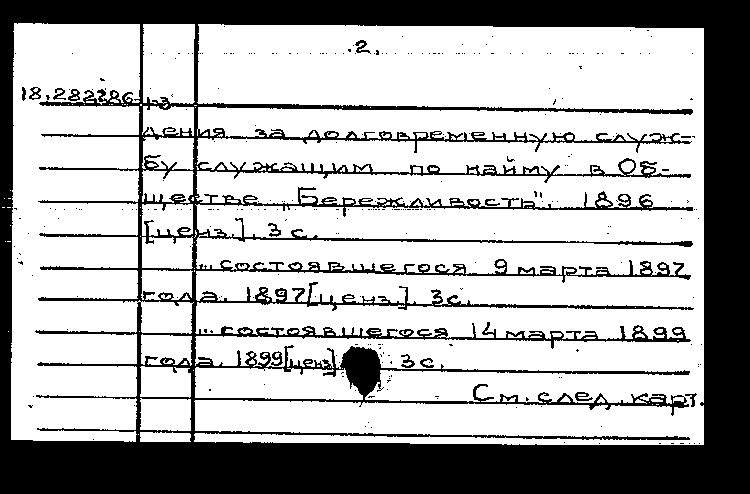 .2.
18.282286-93
дения за долговременную служ-
бу служащим по найму в Об-
ществе „Бережливость". 1896
[ценз.]. 3 с.
... состоявшегося 9 марта 1897
года. 1897[ценз.]. 3с.
... состоявшегося 14 марта 1899
года. 1899[ценз] 3 с.
См. след. карт.